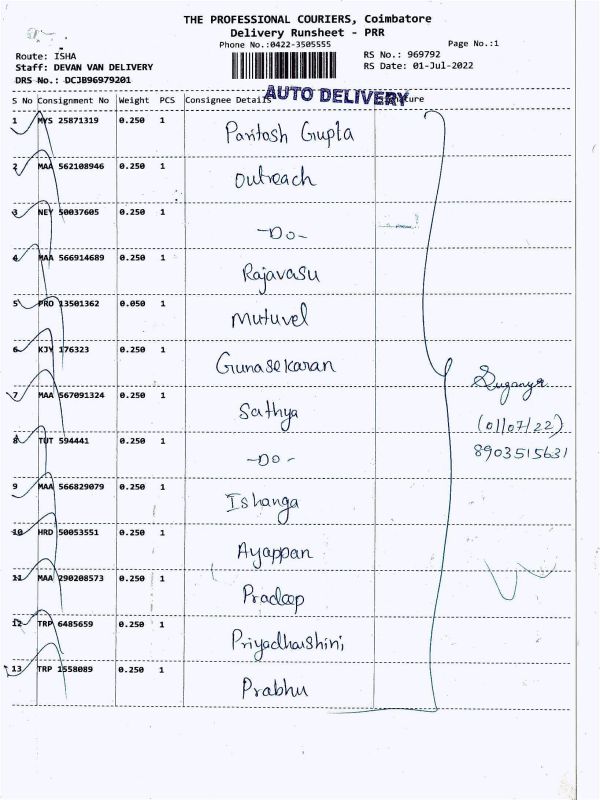 THE PROFESSIONAL COURIERS, Coimbatore
Delivery Runsheet - PRR
Phone No.:0422-3505555
Page No.:1
Route: ISHA
RS No.: 969792
Staff: DEVAN VAN DELIVERY
RS Date: 01-Jul-2022
DRS No.: DCJB96979201
AUTO DELIVERY
S No Consignment No Weight PCS Consignee Details
1 MYS 25871319 0.250 1 Paritosh Gupta
2 MAA 562108946 0.250 1 Outreach
3 NEY 50037605 0.250 1 -Do-
4 MAA 566914689 0.250 1 Rajavasu
5 PRO 13501362 0.050 1 Mutuvel
6 KJY 176323 0.250 1 Gunasekaran
7 MAA 567091324 0.250 1 Sathya
Suganya
(01/07/22)
8903515631
8 TUT 594441 0.250 1 -Do-
9 MAA 566829079 0.250 1 Ishanga
10 HRD 50053551 0.250 1 Ayappan
11 MAA 290208573 0.250 1 Pradeep
12 TRP 6485659 0.250 1 Priyadharshini
13 TRP 1558089 0.250 1 Prabhu